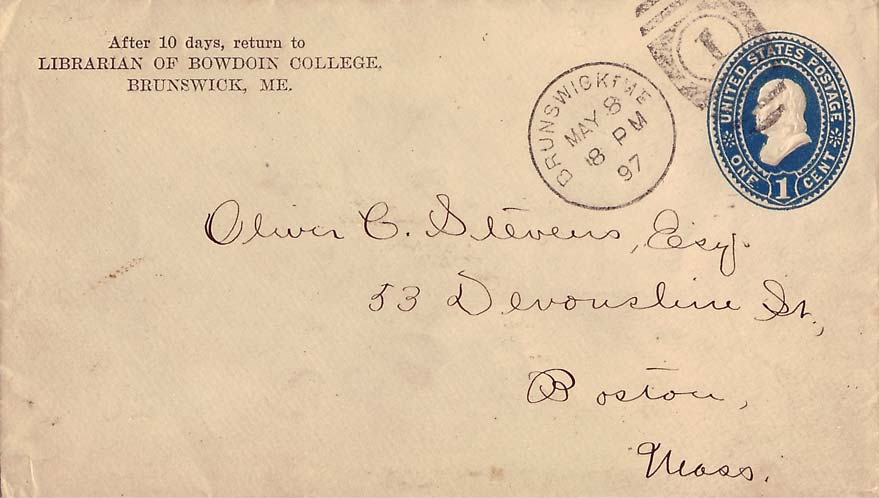 After 10 days, return to
LIBRARIAN OF BOWDOIN COLLEGE.
BRUNSWICK, ME.
BRUNSWICK, ME
MAY 8
8 PM
97
1
UNITED STATES POSTAGE
ONE 1 CENT
Oliver C. Stevens, Esq.
53 Devonshire St.,
Boston,
Mass.